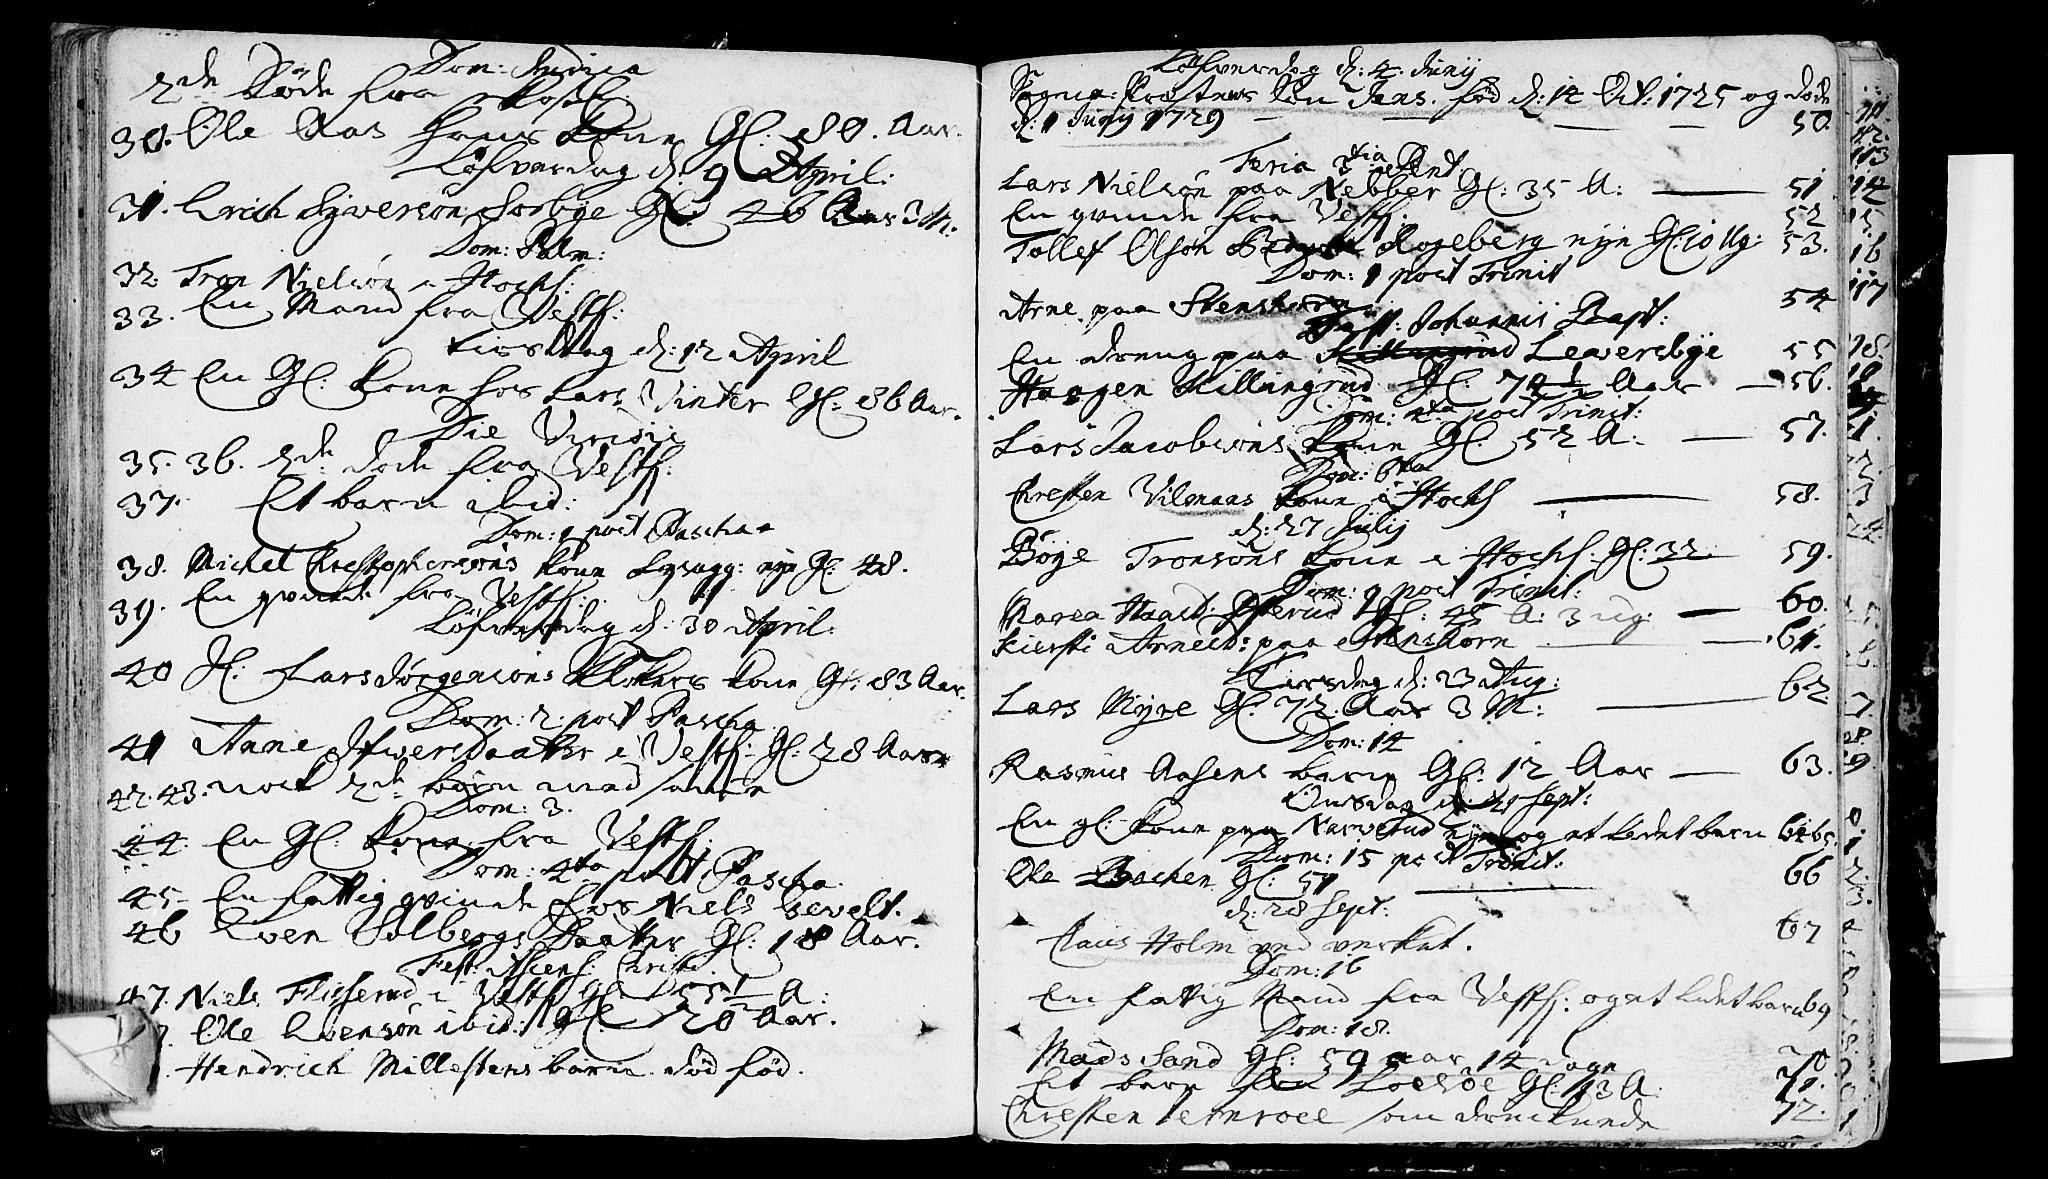 Dom: Judica
2de Døde fra
30. Ole Aas hans Kone Gl: 80. Aar.
Løfverdag d: 9 April:
31. Erich Syversøn Sørbye Gl: 46 Aar 3 M:
Dom: Palm:
32 Tron Nielsøn i Hochs:
33. En Mand fra Vestf:
Tirsdag d: 12 April
34 En Gl: Kone hos Lars Vinter Gl: 86 Aar.
Die Viridii
35. 36. 2de døde fra Vestf:
37. Et barn ibid:
Dom: 1 post Pascha
38. Michel Christophersøns Kone Gl: 48.
39. En qvinde fra Vestf:
Løfverdag d: 30 April:
40 Sl: Lars Jørgensøns Klokers Kone Gl: 83 Aar.
Dom: 2. post Pascha
41 Anne Ifversdaatter i Vestf: Gl: 28 Aar
42. 43. nock 2de børn med samme
Dom: 3.
44. En Gl: Kone fra Vestf:
Dom: 4ta post Pascha
45 En fattig qvinde hos Niels Gevelt.
46 Even Solbergs Daatter Gl: 18 Aar.
Fest: Ascens: Christi
47. Niels Flisserud i Vestf: Gl: 55 1/2 A:
Ole Evensøn ibid: Gl: 20 Aar.
Hendrich Millestens barn død fød.
Løfverdag d: 4. Junij
Sogne: Præstens Søn Jens. fød d: 14 Oct: 1725 og døde
d: 1 Junij 1729 50.
Feria 3tia Pent
Lars Nielsøn paa Nebber Gl: 35 A: 51
En qvinde fra Vestf: 52
Tollef Olsøn Rogeberg Gl: 10 Ug: 53.
Dom: 1 post Trinit
Arne paa Stenshorn 54
Fest: Johannis Bapt:
En dreng paa Leversbye 55
Haagen Killingrud Gl: 74 1/2 Aar 56.
Dom: 2da post Trinit:
Lars Jacobsøns Kone Gl: 52 A: 57.
Dom: 6ta
Christen Vilmaas Kone i Hochs 58.
d: 27 Julij
Børge Tronsøns Kone i Hochs: Gl: 32. 59.
Dom: 9 post Trinit:
Maren Gl: 45 A: 3 ug: 60.
Kiersti Arnesd: paa Stenshorn 61.
Tirsdag d: 23 Aug:
Lars Myre Gl: 72. Aar 3 M: 62
Dom: 14
Rasmus Aasens barn Gl: 12 Aar 63.
Onsdag d: 21 Sept:
En gl: Kone paa Narverud og et lidet barn 64 65.
Dom: 15 post Trinit:
Ole Bachen Gl: 51 66
d: 28 Sept:
Claus Holm ved verket. 67
Dom: 16
En fattig Mand fra Vestf: og et lidet barn 69
Dom: 18.
Mads Sand Gl: 59 aar 14 dage 70
Et barn fra Gl: 13 A: 71.
Christen som drucknede 72.